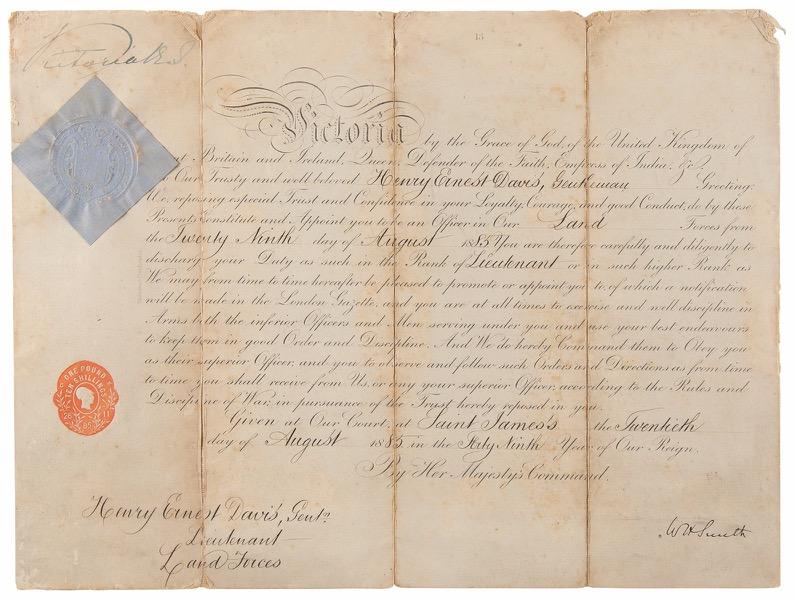 Victoria R I
13
Victoria by the Grace of God, of the United Kingdom of
Britain and Ireland, Queen, Defender of the Faith, Empress of India, &c.
Our Trusty and well beloved Henry Ernest Davis, Gentleman Greeting:
We, reposing especial Trust and Confidence in your Loyalty, Courage, and good Conduct, do by these
Presents Constitute and Appoint you to be an Officer in Our Land Forces from
the Twenty Ninth day of August 1885 You are therefore carefully and diligently to
discharge your Duty as such in the Rank of Lieutenant or in such higher Rank as
We may from time to time hereafter be pleased to promote or appoint you to, of which a notification
will be made in the London Gazette, and you are at all times to exercise and well discipline in
Arms both the inferior Officers and Men serving under you and use your best endeavours
to keep them in good Order and Discipline. And We do hereby Command them to Obey you
as their superior Officer, and you to observe and follow such Orders and Directions as from time
to time you shall receive from Us, or any your superior Officer, according to the Rules and
Discipline of War, in pursuance of the Trust hereby reposed in you.
Given at Our Court, at Saint James's the Twentieth
day of August 1885 in the Forty Ninth Year of Our Reign.
By Her Majesty's Command.
ONE POUND
TEN SHILLINGS
26 11
85
Henry Ernest Davis, Gentn
Lieutenant
Land Forces
W H Smith